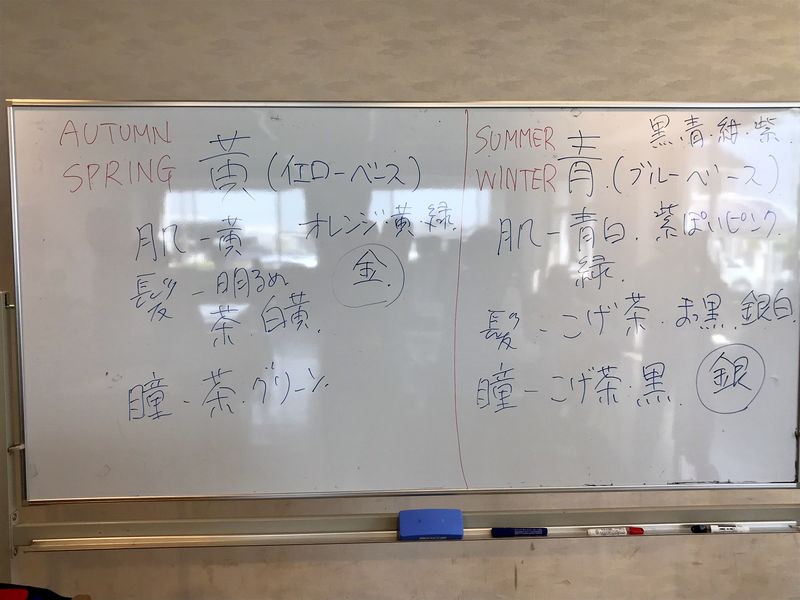 AUTUMN
SPRING 黄 (イエローベース)
肌－黄 オレンジ黄・緑.
髪－明るめ 金.
茶・白黄.
瞳－茶・グリーン.
SUMMER 黒・青・紺・紫.
WINTER 青. (ブルーベース)
肌－青白. 紫ぽいピンク
緑.
髪－こげ茶・まっ黒. 銀白.
瞳－こげ茶・黒. 銀